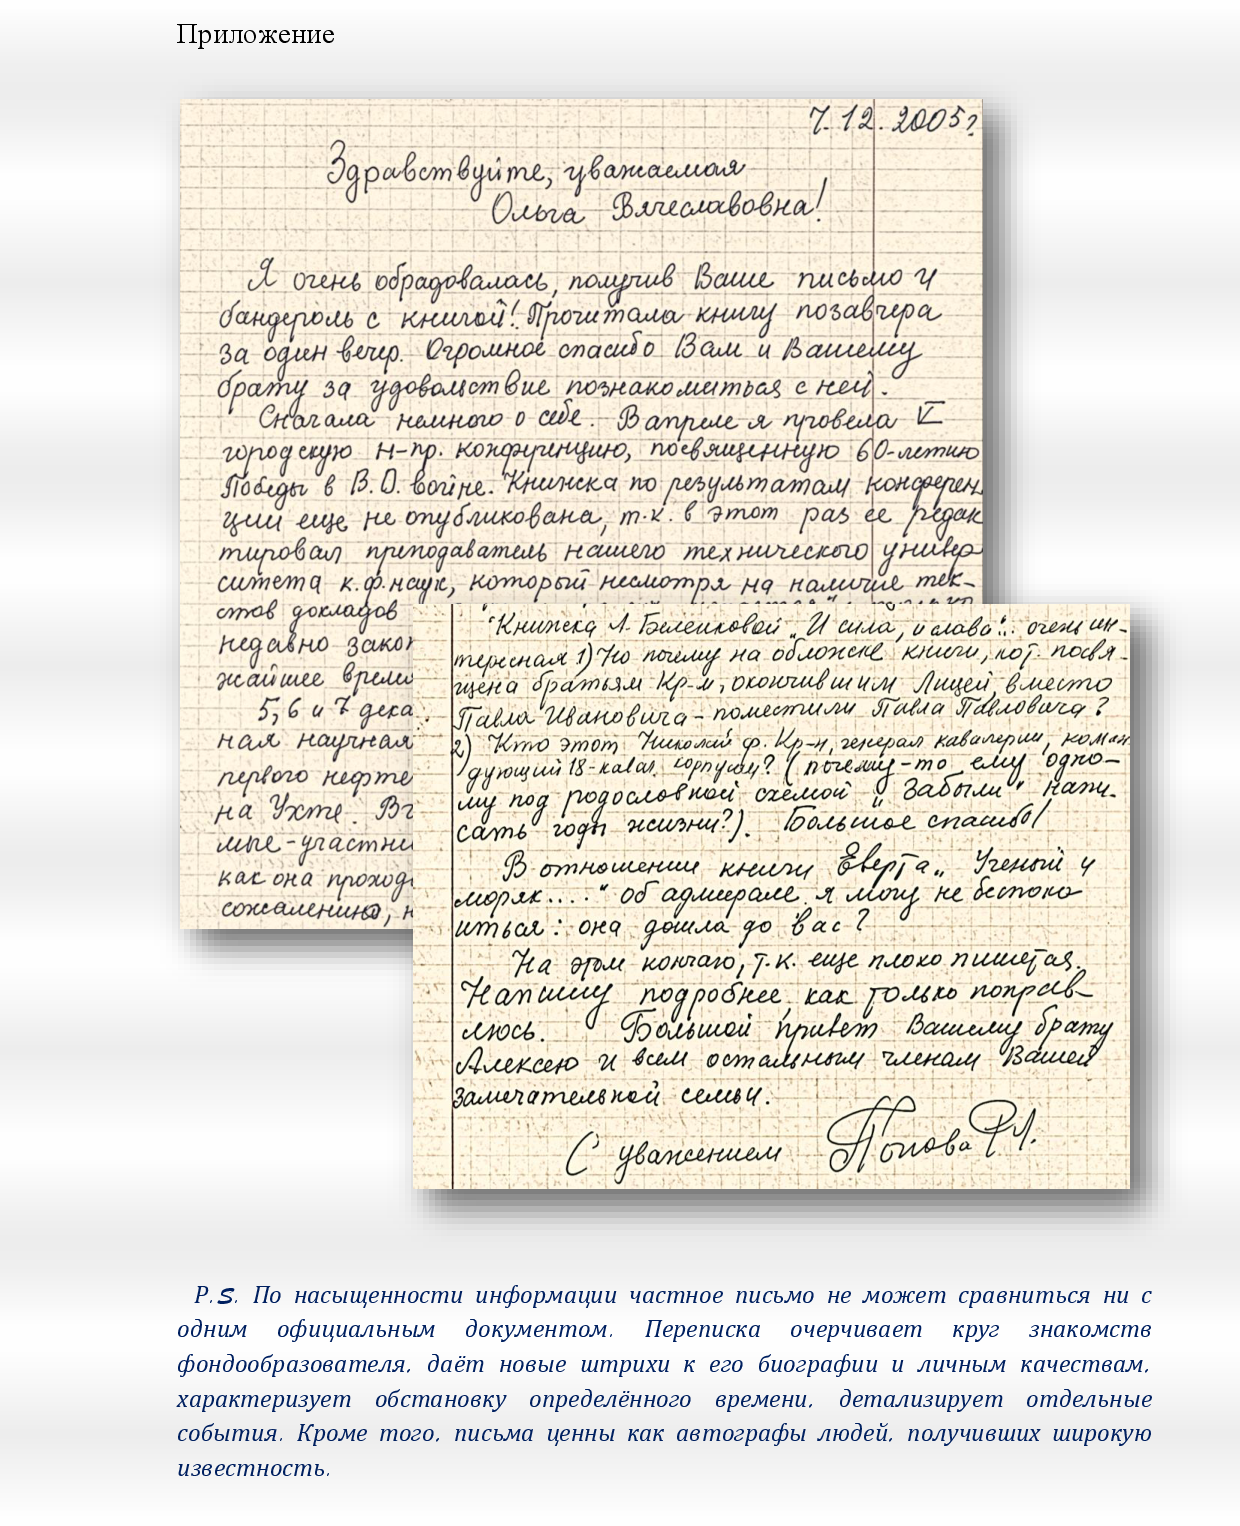 Приложение
7.12.2005г.
Здравствуйте, уважаемая
Ольга Вячеславовна!
Я очень обрадовалась, получив Ваше письмо и
бандероль с книгой! Прочитала книгу позавчера
за один вечер. Огромное спасибо Вам и Вашему
брату за удовольствие познакомиться с ней.
Сначала немного о себе. В апреле я провела
городскую н-пр. конференцию, посвященную 60-летию
Победы в В.О. войне. Книжка по результатам конферен
ции еще не опубликована, т.к. в этот раз ее редак
тировал преподаватель нашего технического универ
ситета к.ф.наук, который несмотря на наличие тек-
стов докладов
недавно закон
жайшее время
5, 6 и 7 дека
ная научная
первого нефте
на Ухте. Вч
мые-участни
как она проход
сожалению, н
Книжка Л. Беленковой „И сила, и слава“... очень ин-
тересная 1) Но почему на обложке книги, кот. посвя-
щена братьям Кр-м, окончившим Лицей, вместо
Павла Ивановича - поместили Павла Павловича?
2) Кто этот Николай ф. Кр-н, генерал кавалерии, коман
дующий 18-кавал. корпусом? (почему-то ему одно-
му под родословной схемой „забыли“ напи-
сать годы жизни?). Большое спасибо!
В отношении книги Еверта „Ученый и
моряк....“ об адмирале я могу не беспоко
иться: она дошла до вас?
На этом кончаю, т.к. еще плохо пишется.
Напишу подробнее, как только поправ-
люсь. Большой привет Вашему брату
Алексею и всем остальным членам Вашей
замечательной семьи.
С уважением Попова Р.Л.
P.S. По насыщенности информации частное письмо не может сравниться ни с
одним официальным документом. Переписка очерчивает круг знакомств
фондообразователя, даёт новые штрихи к его биографии и личным качествам,
характеризует обстановку определённого времени, детализирует отдельные
события. Кроме того, письма ценны как автографы людей, получивших широкую
известность.